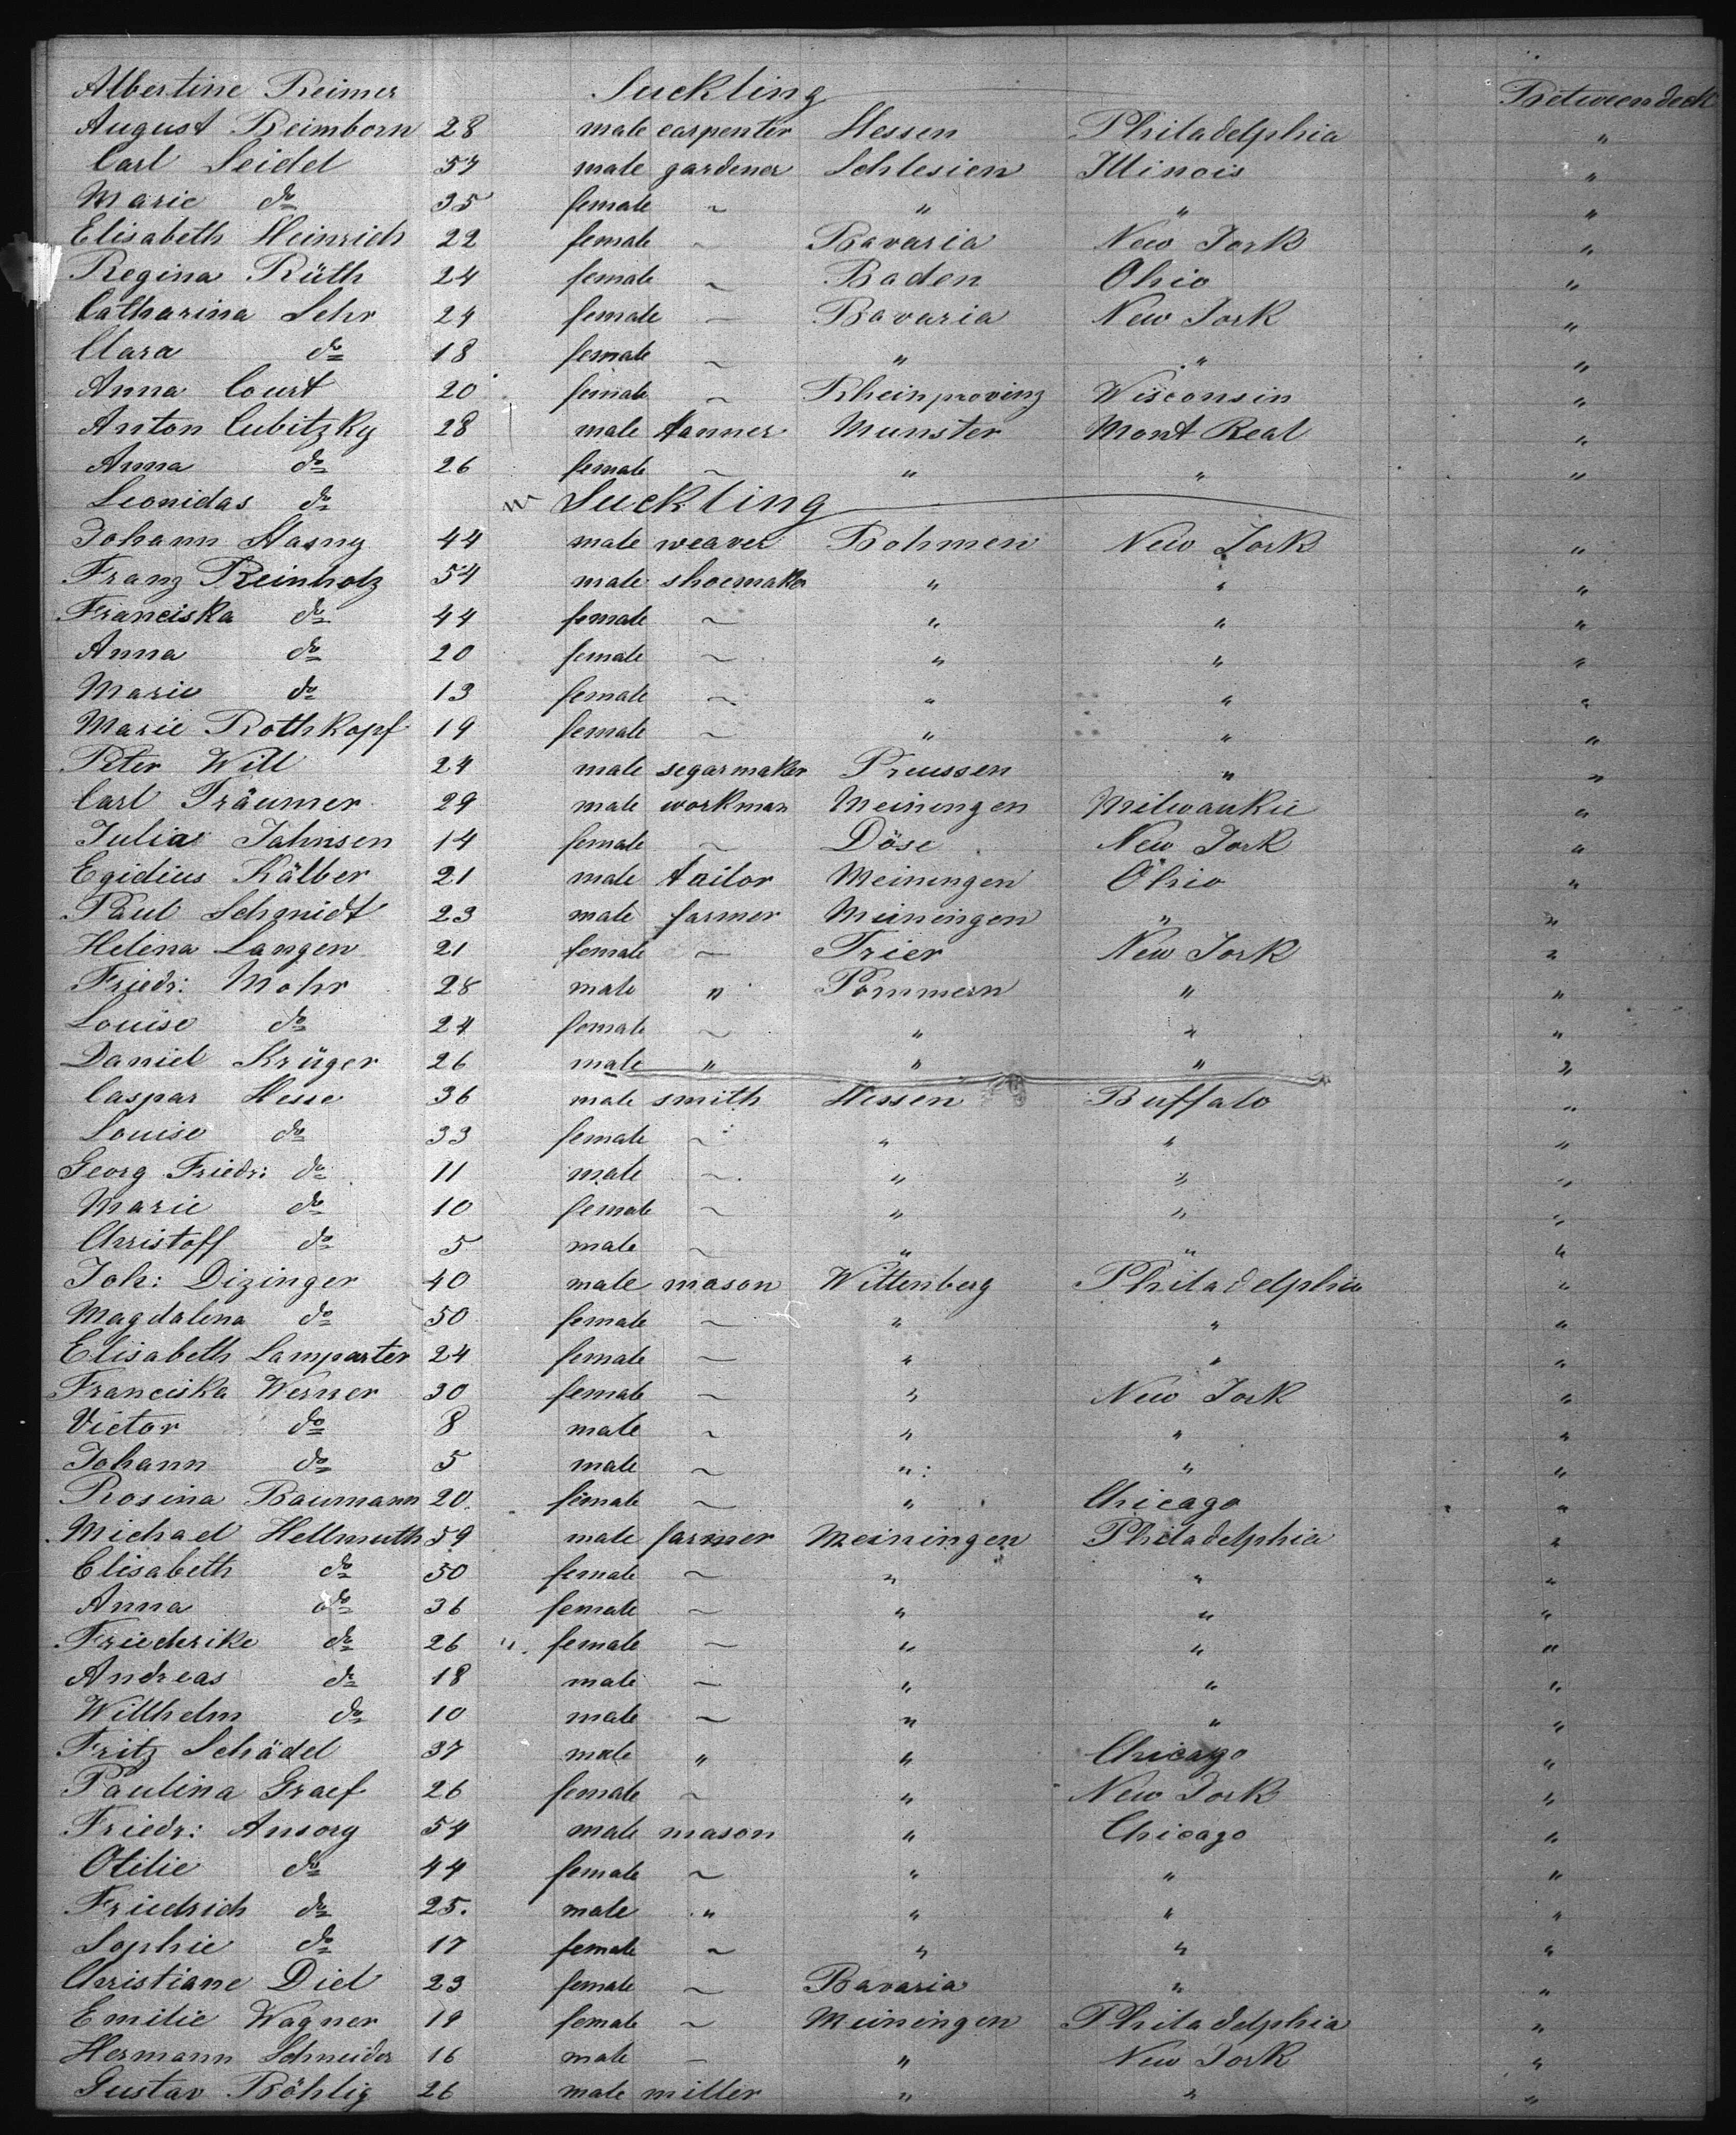 Albertine Reimer Suckling Between deck
August Reimborn 28 male carpenter Hessen Philadelphia "
Carl Seidel 57 male gardener Schlesien Illinois "
Marie do 35 female ~ " " "
Elisabeth Heinrich 22 female ~ Bavaria New York "
Regina Rüth 24 female ~ Baden Ohio "
Catharina Sehr 24 female ~ Bavaria New York "
Clara do 18 female ~ " " "
Anna Court 20 female ~ Rheinprovinz Wisconsin "
Anton Cubitzky 28 male tanner Munster Mont Real "
Anna do 26 female ~ " " "
Leonidas do Suckling
Johann Stasny 44 male weaver Bohmen New York "
Franz Reinholz 54 male shoemaker " " "
Franciska do 44 female ~ " " "
Anna do 20 female ~ " " "
Marie do 13 female ~ " " "
Marie Rothkopf 19 female ~ " " "
Peter Will 24 male segarmaker Preussen " "
Carl Träumer 29 male workman Meiningen Milwaukie "
Julia Jahnsen 14 female ~ Döse New York "
Egidius Kälber 21 male tailor Meiningen Ohio "
Paul Schmidt 23 male farmer Meiningen " "
Helena Langen 21 female ~ Trier New York "
Friedr: Mohr 28 male " Pommern " "
Louise do 24 female ~ " " "
Daniel Krüger 26 male " " " "
Caspar Hesse 36 male smith Hessen Buffalo "
Louise do 33 female ~ " " "
Georg Friedr: do 11 male ~ " " "
Marie do 10 female ~ " " "
Christoff do 5 male ~ " " "
Joh: Dizinger 40 male mason Wittenberg Philadelphia "
Magdalena do 50 female ~ " " "
Elisabeth Lamparter 24 female ~ " " "
Franciska Werner 30 female ~ " New York "
Victor do 8 male ~ " " "
Johann do 5 male ~ " " "
Rosina Baumann 20 female ~ " Chicago "
Michael Hellmuth 59 male farmer Meiningen Philadelphia "
Elisabeth do 50 female ~ " " "
Anna do 36 female ~ " " "
Friederike do 26 female ~ " " "
Andreas do 18 male ~ " " "
Willhelm do 10 male ~ " " "
Fritz Schädel 37 male " " Chicago "
Paulina Graef 26 female ~ " New York "
Friedr: Ansorg 54 male mason " Chicago "
Otilie do 44 female ~ " " "
Friedrich do 25. male " " " "
Sophie do 17 female ~ " " "
Christiane Diel 23 female ~ Bavaria " "
Emilie Wagner 19 female ~ Meiningen Philadelphia "
Hermann Schneider 16 male ~ " New York "
Gustav Böhlig 26 male miller " " "